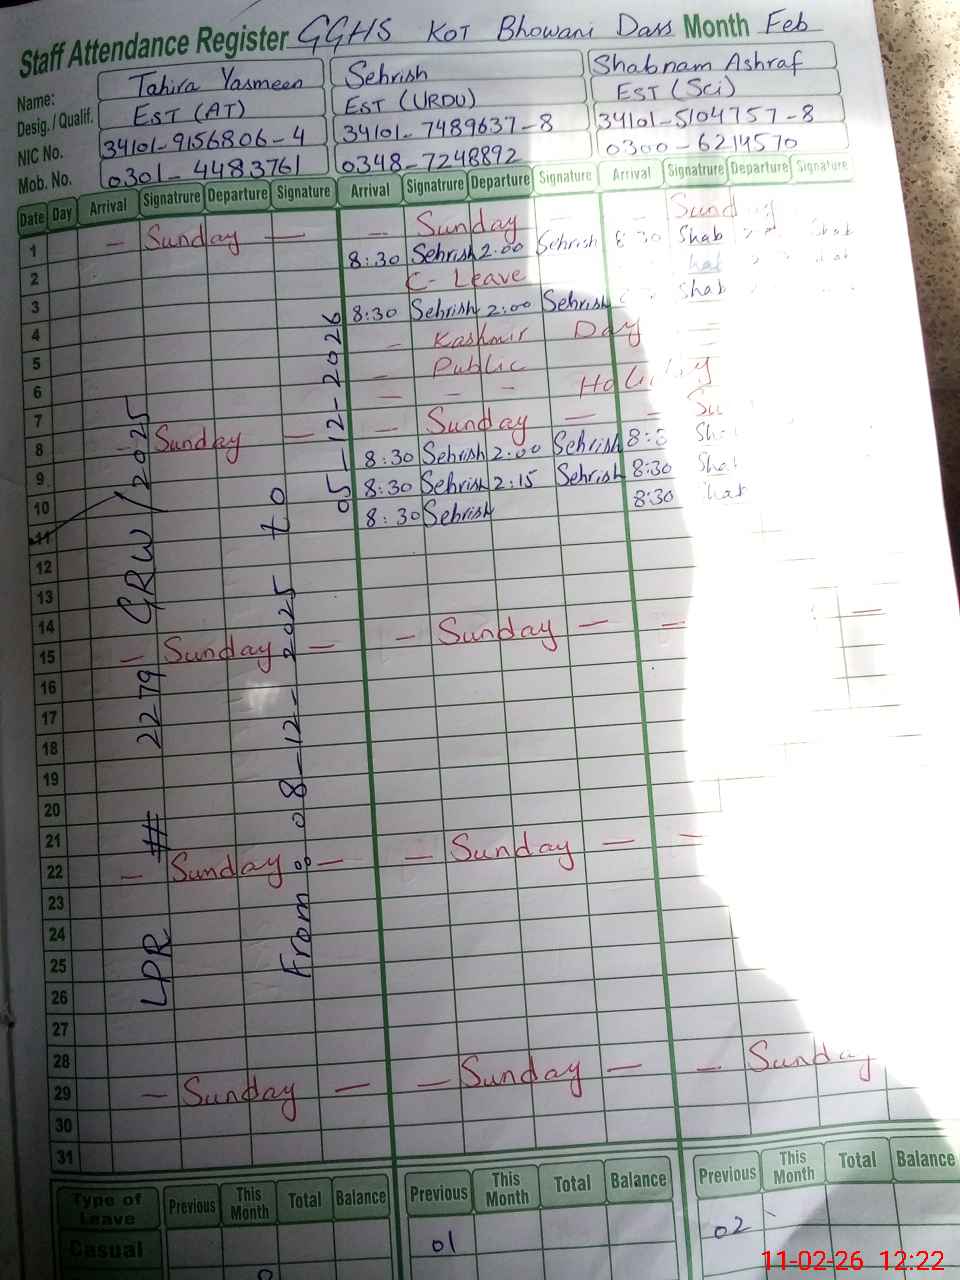 Staff Attendance Register GGHS KOT Bhowani Dass Month Feb
Name: Tahira Yasmeen Sehrish Shabnam Ashraf
Desig. / Qualif. EST (AT) EST (URDU) EST (Sci)
NIC No. 34101-9156806-4 34101-7489637-8 34101-5104757-8
Mob. No. 0301-4483761 0348-7248892 0300-6214570
Date Day Arrival Signatrure Departure Signature Arrival Signatrure Departure Signature Arrival Signature Departure Signature
1 - Sunday - - Sunday - - Sund
2 8:30 Sehrish 2:00 Sehrish 8:30 Shab
3 C- Leave
4 8:30 Sehrish 2:00 Sehrish Shab
5 - Kashmir Day
6 - Public
7 - - - Holiday
8 - Sunday - - Sunday - -
9 8:30 Sehrish 2:00 Sehrish
10 8:30 Sehrish 2:15 Sehrish 8:30
11 8:30 Sehrish 8:30
12
13
14
15 - Sunday - - Sunday - -
16
17
18
19
20
21
22 - Sunday - - Sunday - -
23
24
25
26
27
28
29 - Sunday - - Sunday - - Sunday
30
31
LPR # 2279 GRW / 2025
From : 08-12-2025 to
05-12-2026
Type of Leave Previous This Month Total Balance Previous This Month Total Balance Previous This Month Total Balance
Casual 01 02
11-02-26 12:22